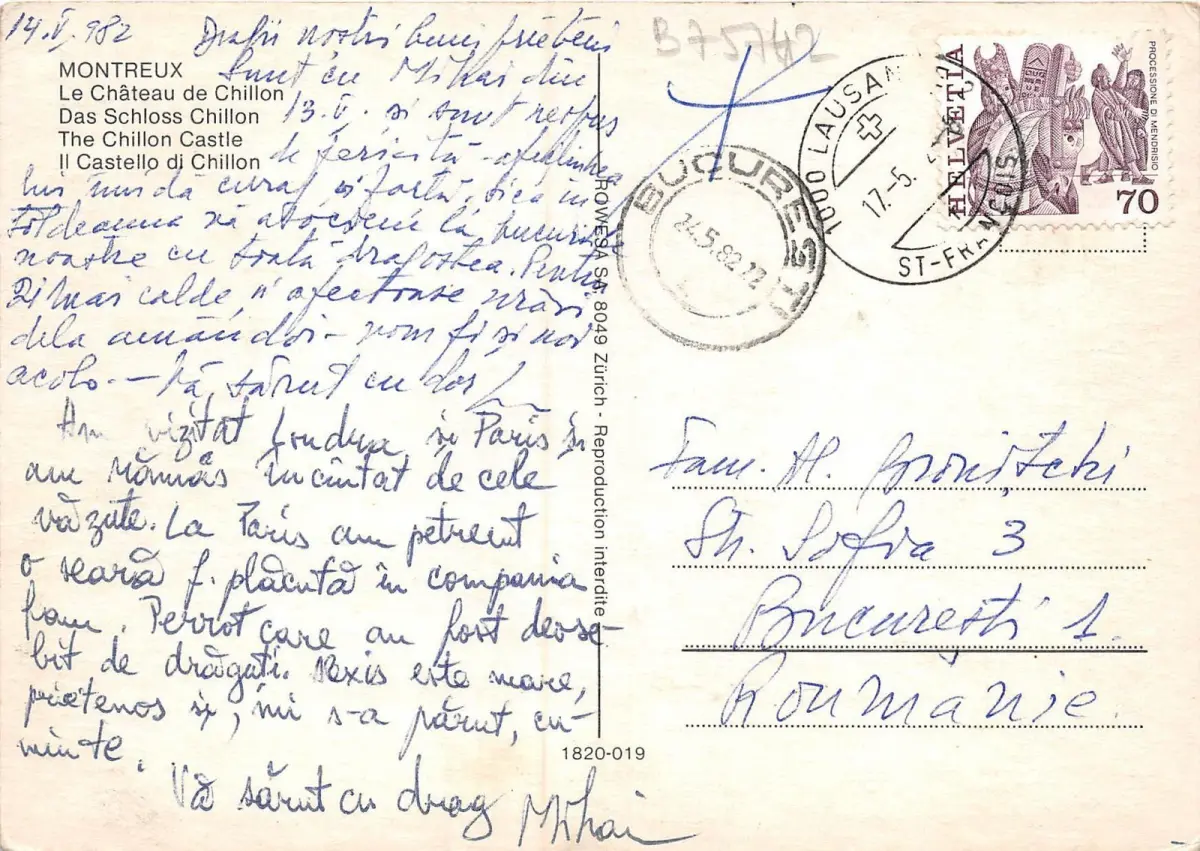 14.V.982 Dragii noștri buni prieteni
MONTREUX
Le Château de Chillon
Das Schloss Chillon
The Chillon Castle
Il Castello di Chillon
Sunt cu Mihai din
13.V. și sunt
de fericită - afecțiunea
lui îmi dă curaj și forță,
totdeauna vă asociem la bucuria
noastre cu toată dragostea. Pentru
calde, și afectuoase urări
dela amândoi - vom fi și noi
acolo. - Vă sărut cu dor
Am vizitat Londra și Paris și
am rămas încîntat de cele
văzute. La Paris am petrecut
o seară f. plăcută în compania
fam. Perrot care au fost deose-
bit de drăguți. este mare,
prietenos și, mi s-a părut, cu-
minte.
Vă sărut cu drag Mihai
ROWESA SA, 8049 Zürich - Reproduction interdite
1820-019
B75742
BUCUREȘTI
24.5.82.22
1000 LAUSANNE
17.-5.
ST-FRANÇOIS
HELVETIA
PROCESSIONE DI MENDRISIO
70
Fam. M.
Str. Sofia 3
București 1.
Roumanie.